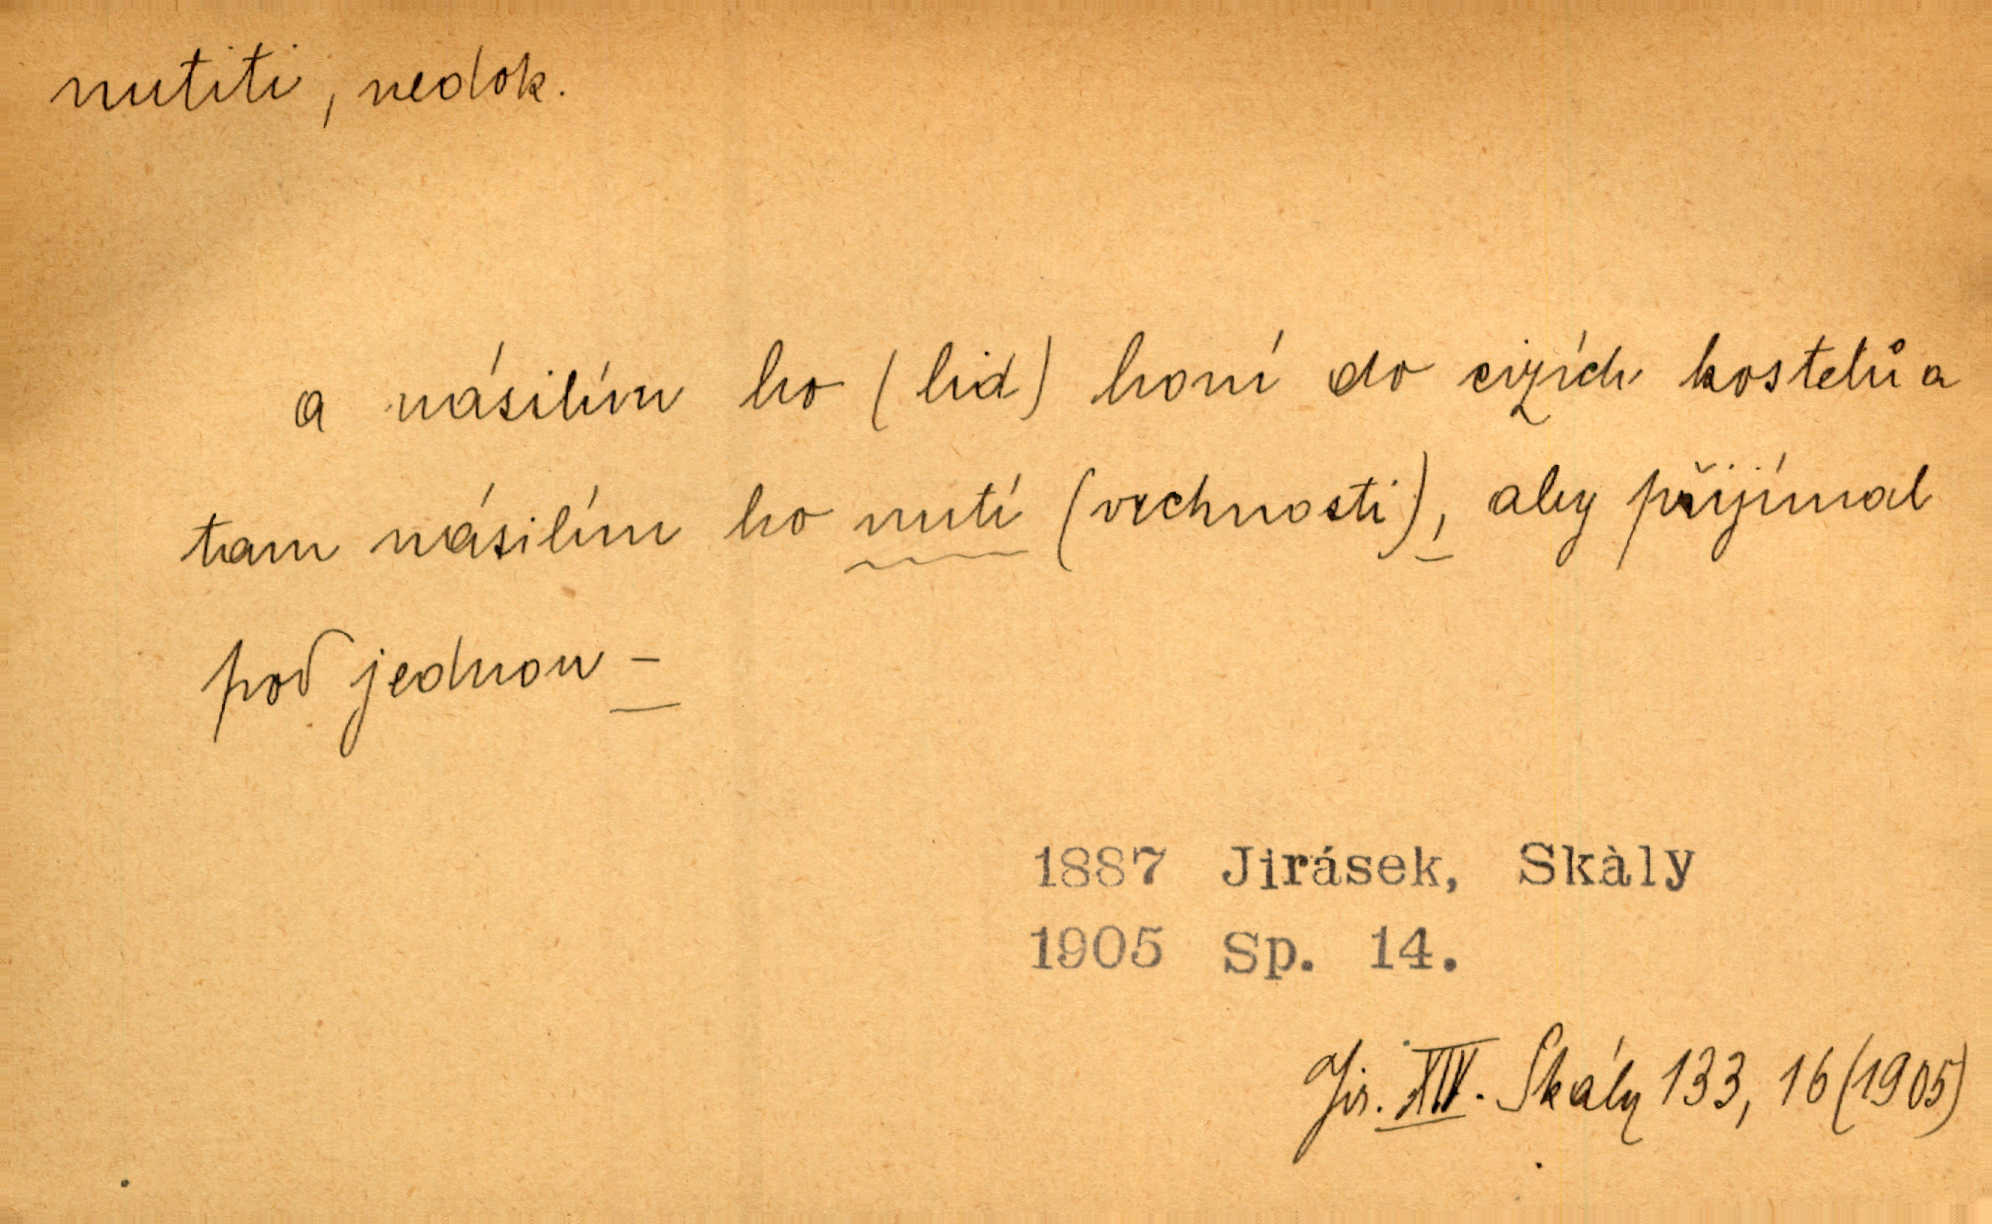 nutiti, nedok.
a násilím ho (lid) honí do cizích kostelů a
tam násilím ho nutí (vrchnosti), aby přijímal
pod jednou –
1887 Jirásek, Skàly
1905 Sp. 14.
Jir. XIV. Skály 133, 16 (1905)